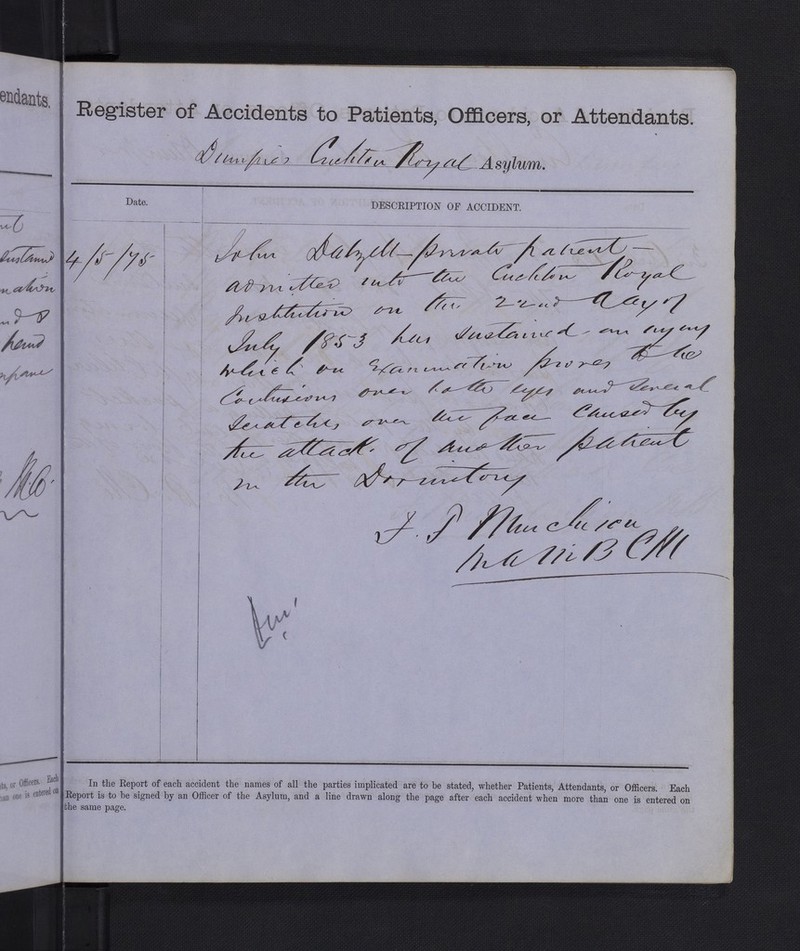 endants.
Register of Accidents to Patients, Officers, or Attendants.
Dumfries Crichton Royal Asylum.
Date.
DESCRIPTION OF ACCIDENT.
4/5/75
John Dalzell - private patient -
admitted into the Crichton Royal
Institution on the 22nd day of
July 1853 has sustained an injury
which on examination proves to be
Contusions over both eyes and several
Scratches over the face caused by
the attack of another patient
in the Dormitory
F. J Murchison
M A M B C M
In the Report of each accident the names of all the parties implicated are to be stated, whether Patients, Attendants, or Officers. Each
Report is to be signed by an Officer of the Asylum, and a line drawn along the page after each accident when more than one is entered on
the same page.